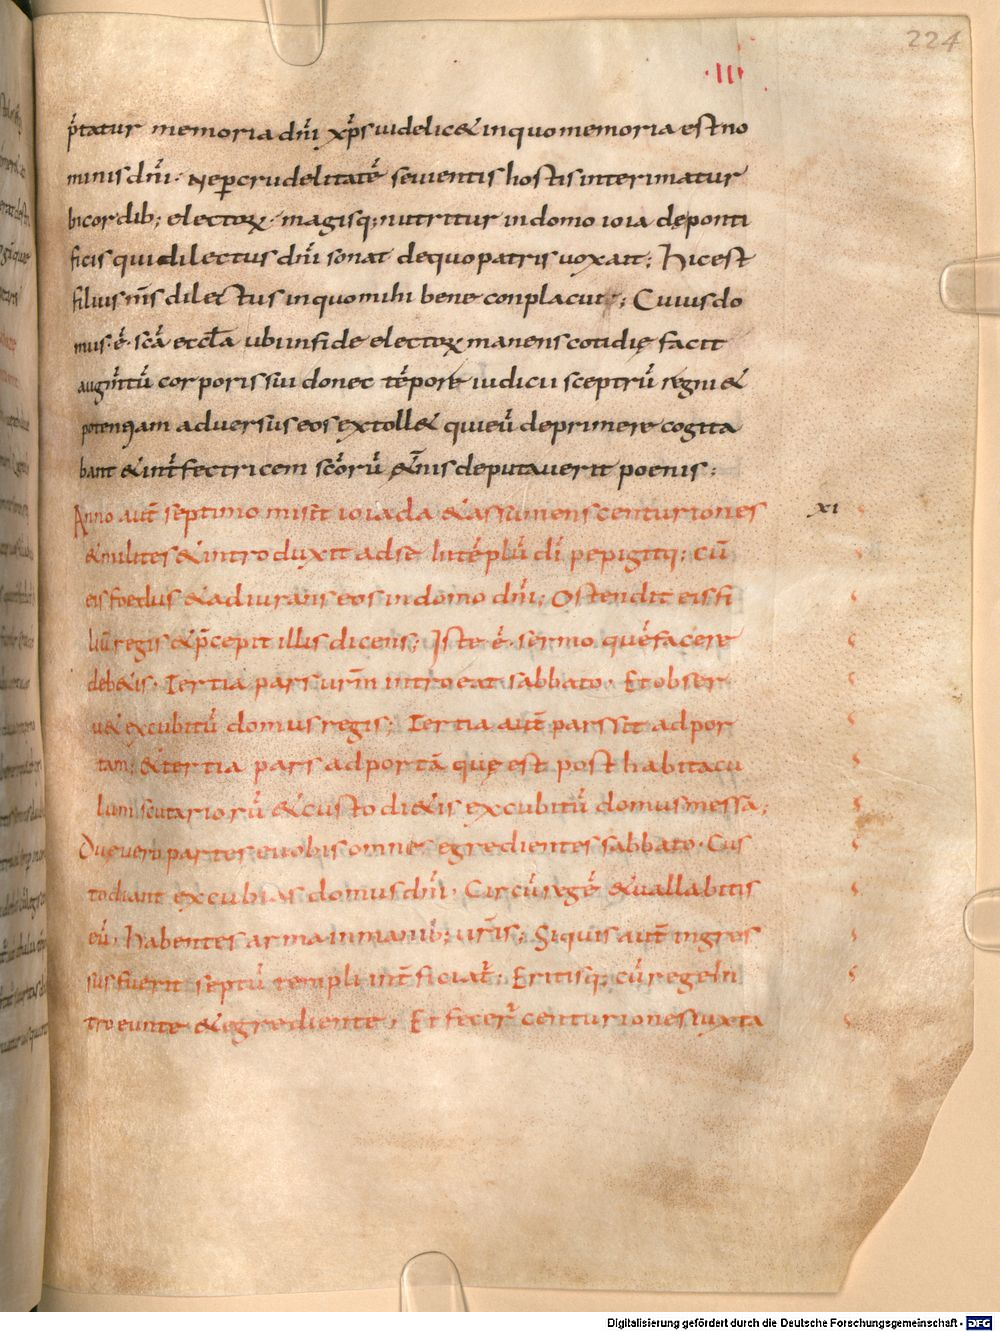 224
·III
p̄tatur memoria dn̄i xp̄s uidelic& in quo memoria est no
minis dn̄i. Ne per crudelitatē seuientis hostis interimatur
bicordib; electorꝝ. magisq; nutritur in domo ioia dę ponti
ficis qui dilectus dn̄i sonat de quo patris uox ait; Hic est
filius m̄s dilectus in quo mihi bene conplacuit; Cuius do
mus .ē. sc̄a eccła ubi in fide electorꝝ manens cotidię facit
augm̄tū corporis sui donec tēpore iudicii sceptrū regni &
potentiam aduersus eos extoll& qui eū deprimere cogita
bant & int̄fectricem sc̄orū &n̄is deputauerit poenis;
Anno aut̄ septimo misit ioiada & assumens centuriones
& milites & introduxit ad se In tēplū dī pepigitq; cū
eis foedus & adiurans eos in domo dn̄i; Ostendit eis fi
liū regis & p̄cepit illis dicens; Iste .ē. sermo quē facere
deb&is. Tertia pars ur̄m introeat sabbato. Et obser
u& excubitū domus regis; Tertia aut̄ pars sit ad por
tam; & tertia pars ad portā quę est post habitacu
lum scutariorū & custodi&is excubitū domus messa;
Duę uero partes e uobis omnes egredientes sabbato. Cus
todiant excubias domus dn̄i. Circū regē & uallabitis
eū. habentes arma in manib; ur̄is; Si quis aut̄ ingres
sus fuerit septū templi int̄ficiat̄. Eritisq; cū rege In
troeunte & egrediente; Et fecer̄ centuriones iuxta
xi
Digitalisierung gefördert durch die Deutsche Forschungsgemeinschaft - DFG